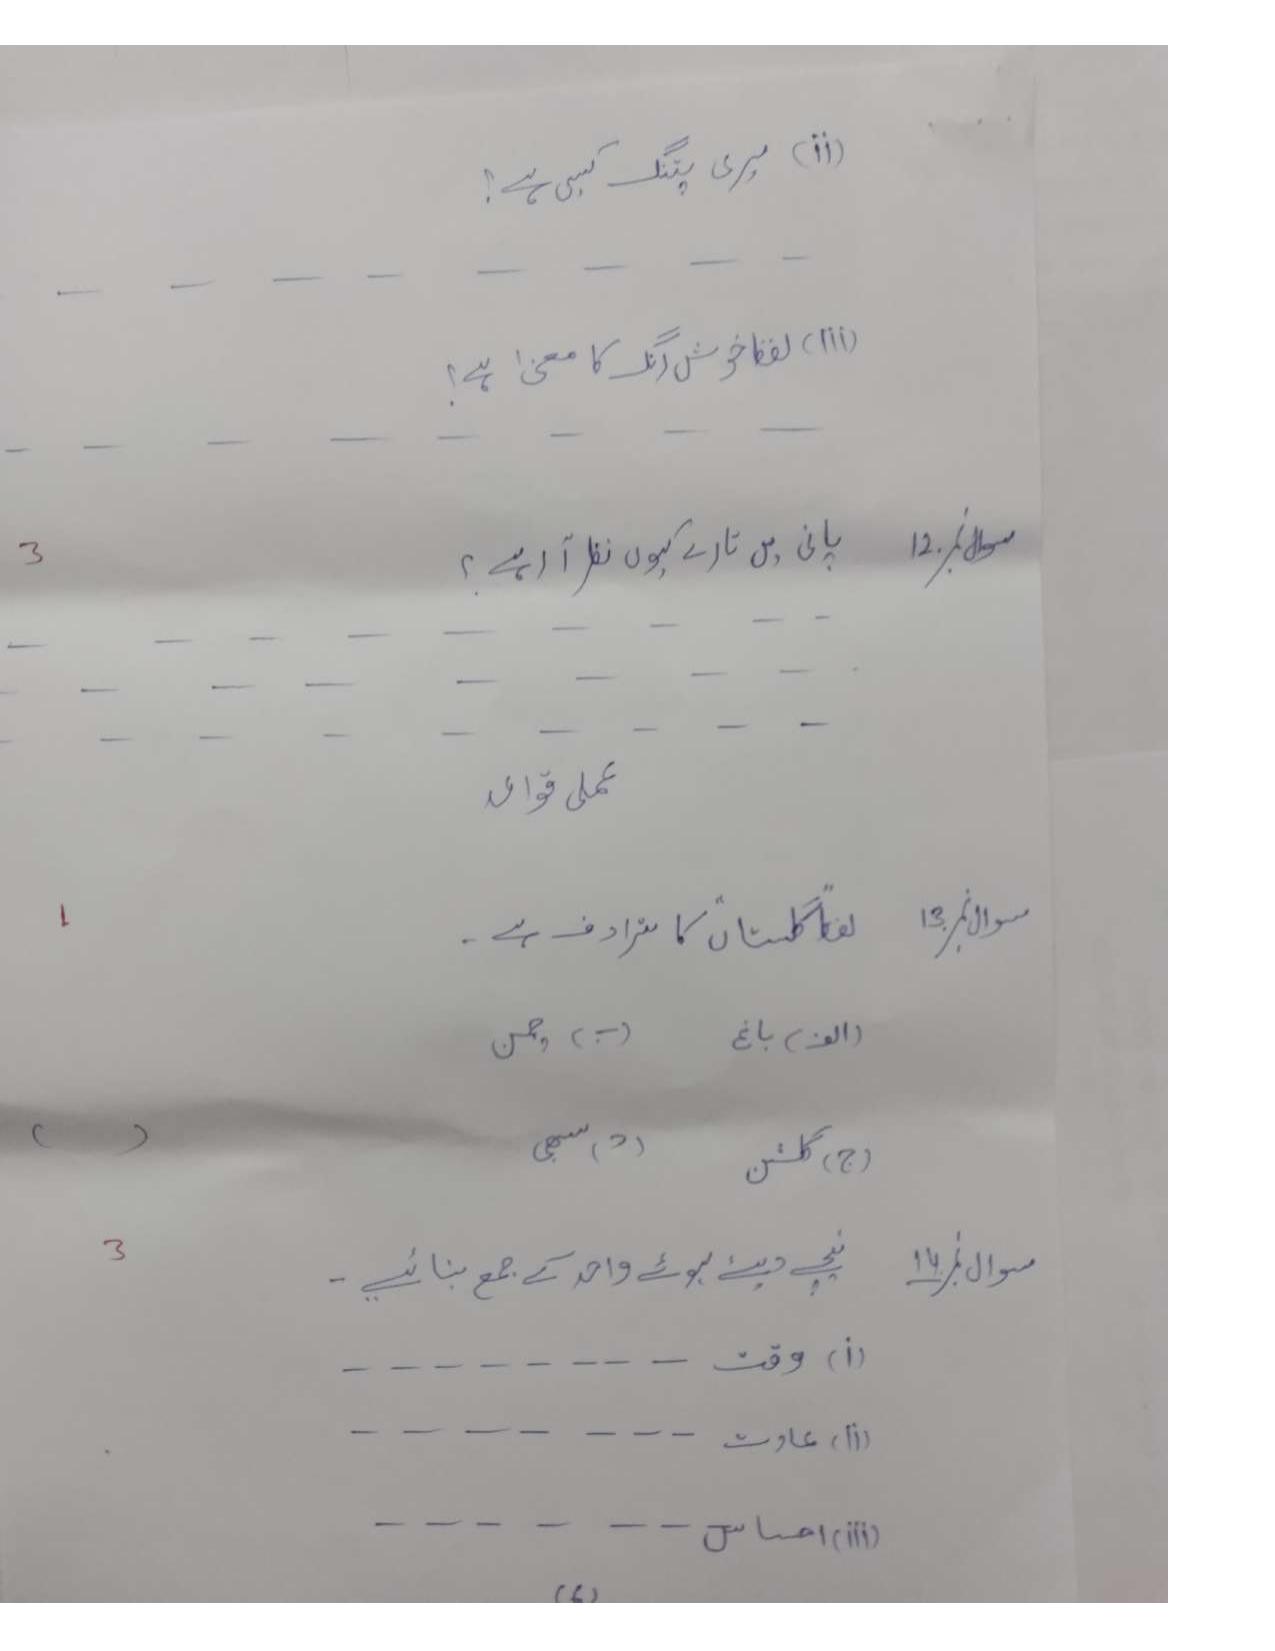 (ii) میری پتنگ کیسی ہے؟
(iii) لفظ خوش رنگ کا معنیٰ ہے؟
سوال نمبر 12. پانی میں تارے کیوں نظر آ رہے ؟ 3
عملی قواعد
سوال نمبر 13. لفظ "گلستاں" کا مترادف ہے ۔ 1
(الف) باغ (ب) چمن
(ج) گلشن (د) سبھی ( )
سوال نمبر 14 نیچے دیئے ہوئے واحد کے جمع بنائیے ۔ 3
(i) وقت – – – – – – – –
(ii) عادت – – – – – – –
(iii) احساس – – – – – –
(6)